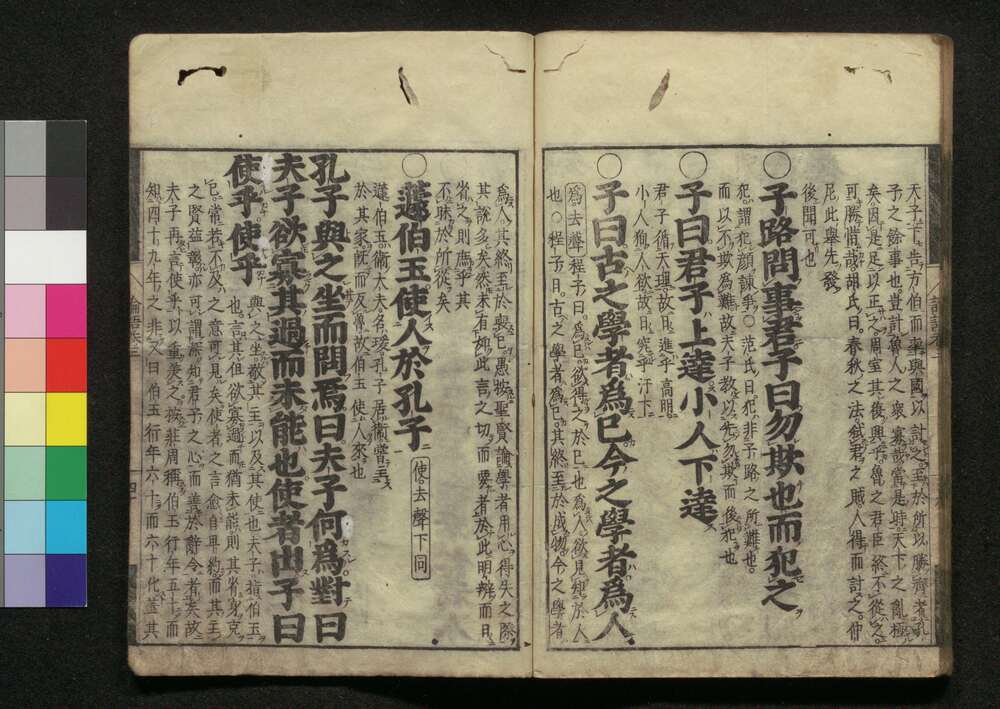 天子下告方伯而率與國以討之至於所以勝齊者孔
子之餘事也豈計魯人之衆寡哉當是時天下之亂極
矣因是足以正之周室其復興乎魯之君臣終不從之
可勝惜哉胡氏曰春秋之法弑君之賊人得而討之仲
尼此舉先發
後聞可也
○子路問事君子曰勿欺也而犯之
犯謂犯顔諫爭○范氏曰犯非子路之所難也
而以不欺爲難故夫子教以先勿欺而後犯也
○子曰君子上達小人下達
君子循天理故日進乎高明
小人徇人欲故日究乎汙下
○子曰古之學者爲己今之學者爲人
爲去聲程子曰爲己欲得之於己也爲人欲見知於人
也○程子曰古之學者爲己其終至於成物今之學者
爲人其終至於喪己愚按聖賢論學者用心得失之際
其說多矣然未有如此言之切而要者於此明辨而日
省之則庶乎其
不昧於所從矣
○蘧伯玉使人於孔子
使去聲下同
蘧伯玉衞大夫名瑗孔子居衞嘗主
於其家旣而反魯故伯玉使人來也
孔子與之坐而問焉曰夫子何爲對曰
夫子欲寡其過而未能也使者出子曰
使乎使乎
與之坐敬其主以及其使也夫子指伯玉
也言其但欲寡過而猶未能則其省身克
己常若不及之意可見矣使者之言愈自卑約而其主
之賢益彰亦可謂深知君子之心而善於辭令者矣故
夫子再言使乎以重美之按莊周稱伯玉行年五十而
知四十九年之非又曰伯玉行年六十而六十化蓋其